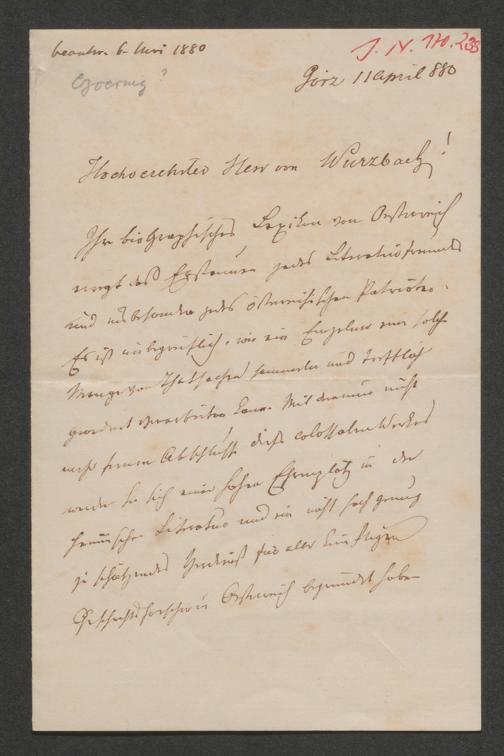 beantw. 6. Juni 1880
J. N. 170.238
Goerny ?
Görz 11 April 880
Hochverehrter Herr von Wurzbach!
Ihr biographisches Lexikon von Oesterreich
erregt das Erstaunen jedes Literaturfreundes
und insbesondere jedes österreichischen Patrioten.
Es ist unbegreiflich, wie ein Einzelner eine solche
Menge von Thatsachen sammeln und trefflich
geordnet verarbeiten kann. Mit
nach dem Abschluße dieses colossalen Werkes
werden Sie sich einen hohen Ehrenplatz in der
heimischen Literatur und ein nicht hoch genug
zu schätzendes Verdienst für alle künftigen
Geschichtsforscher in Oesterreich begründet haben